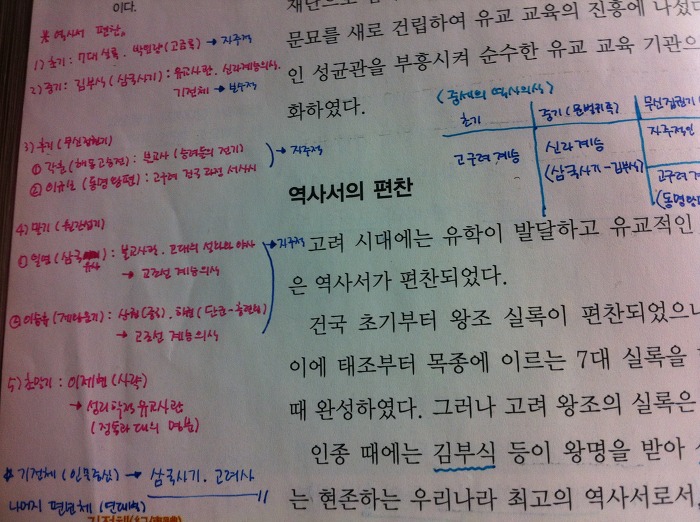 이다.
※ 역사서 편찬.
1) 초기 : 7대 실록. 박인량(고금록) → 자주적
2) 중기 : 김부식 (삼국사기) : 유교사관. 신라계승의식.
기전체 → 보수적
3) 후기 (무신집권기)
① 각훈 (해동고승전) : 불교사 (승려들의 전기)
② 이규보 (동명왕편) : 고구려 건국 과정 서사시
→ 자주적
4) 말기 (원간섭기)
① 일연 (삼국유사) : 불교사관. 고대의 설화와 야사
→ 고조선 계승의식
② 이승휴 (제왕운기) : 상권(중국). 하권 (단군~충렬왕)
→ 고조선 계승의식
→ 자주적
5) 혼란기 : 이제현 (사략)
→ 성리학적 유교사관
(정통과 대의 명분)
* 기전체 (인물중심) → 삼국사기. 고려사
나머지 편년체 (연대별)
문묘를 새로 건립하여 유교 교육의 진흥에 나섰다
인 성균관을 부흥시켜 순수한 유교 교육 기관으
화하였다.
(중세의 역사의식)
초기 중기 (문벌귀족) 무신집권기
고구려 계승 신라 계승 자주적인
(삼국사기-김부식) 고구려 계
(동명왕
역사서의 편찬
고려 시대에는 유학이 발달하고 유교적인
은 역사서가 편찬되었다.
건국 초기부터 왕조 실록이 편찬되었으나
이에 태조부터 목종에 이르는 7대 실록을
때 완성하였다. 그러나 고려 왕조의 실록은
인종 때에는 김부식 등이 왕명을 받아
는 현존하는 우리나라 최고의 역사서로서